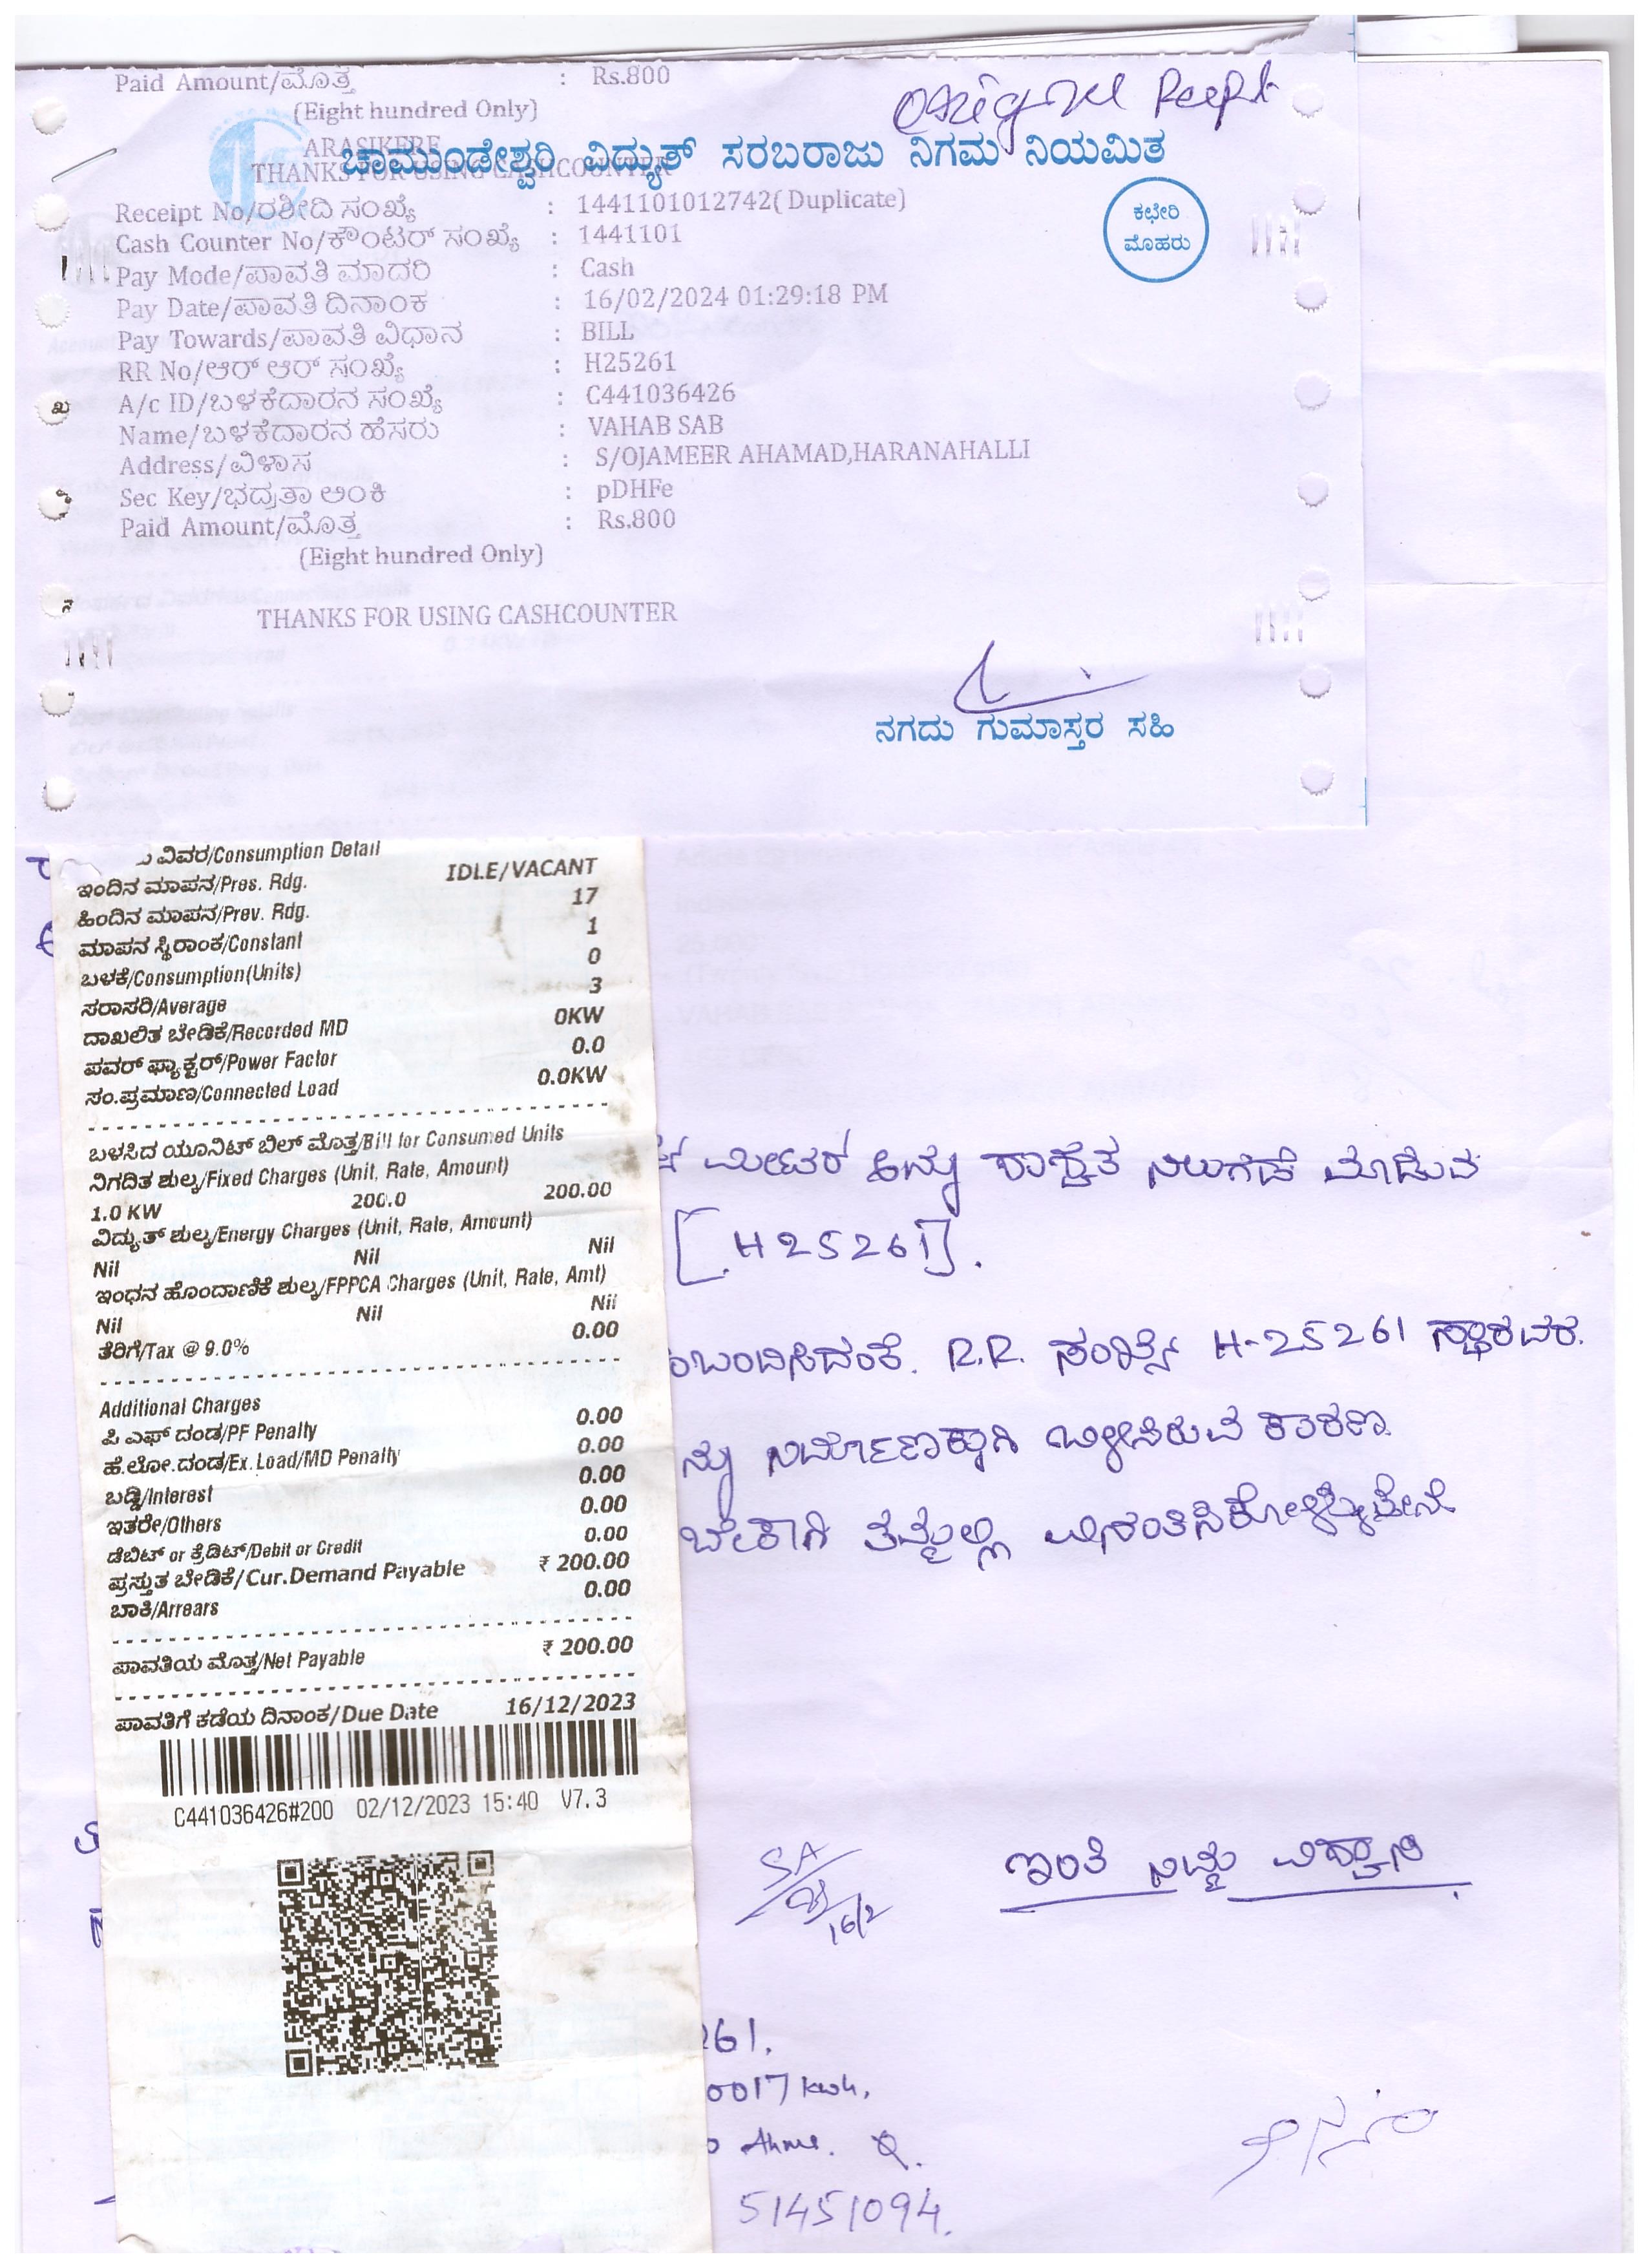 Paid Amount/ಮೊತ್ತ : Rs.800
(Eight hundred Only)
Original Recept
ARASIKERE
ಚಾಮುಂಡೇಶ್ವರಿ ವಿದ್ಯುತ್ ಸರಬರಾಜು ನಿಗಮ ನಿಯಮಿತ
THANKS FOR USING CASHCOUNTER
ಕಛೇರಿ
ಮೊಹರು
Receipt No/ರಶೀದಿ ಸಂಖ್ಯೆ : 1441101012742(Duplicate)
Cash Counter No/ಕೌಂಟರ್ ಸಂಖ್ಯೆ : 1441101
Pay Mode/ಪಾವತಿ ಮಾದರಿ : Cash
Pay Date/ಪಾವತಿ ದಿನಾಂಕ : 16/02/2024 01:29:18 PM
Pay Towards/ಪಾವತಿ ವಿಧಾನ : BILL
RR No/ಆರ್ ಆರ್ ಸಂಖ್ಯೆ : H25261
A/c ID/ಬಳಕೆದಾರನ ಸಂಖ್ಯೆ : C441036426
Name/ಬಳಕೆದಾರನ ಹೆಸರು : VAHAB SAB
Address/ವಿಳಾಸ : S/OJAMEER AHAMAD,HARANAHALLI
Sec Key/ಭದ್ರತಾ ಅಂಕಿ : pDHFe
Paid Amount/ಮೊತ್ತ : Rs.800
(Eight hundred Only)
THANKS FOR USING CASHCOUNTER
ನಗದು ಗುಮಾಸ್ತರ ಸಹಿ
ವಿವರ/Consumption Detail
ಇಂದಿನ ಮಾಪನ/Pres. Rdg. IDLE/VACANT
ಹಿಂದಿನ ಮಾಪನ/Prev. Rdg. 17
ಮಾಪನ ಸ್ಥಿರಾಂಕ/Constant 1
ಬಳಕೆ/Consumption(Units) 0
ಸರಾಸರಿ/Average 3
ದಾಖಲಿತ ಬೇಡಿಕೆ/Recorded MD 0KW
ಪವರ್ ಫ್ಯಾಕ್ಟರ್/Power Factor 0.0
ಸಂ.ಪ್ರಮಾಣ/Connected Load 0.0KW
ಬಳಸಿದ ಯೂನಿಟ್ ಬಿಲ್ ಮೊತ್ತ/Bill for Consumed Units
ನಿಗದಿತ ಶುಲ್ಕ/Fixed Charges (Unit, Rate, Amount)
1.0 KW 200.0 200.00
ವಿದ್ಯುತ್ ಶುಲ್ಕ/Energy Charges (Unit, Rate, Amount)
Nil Nil Nil
ಇಂಧನ ಹೊಂದಾಣಿಕೆ ಶುಲ್ಕ/FPPCA Charges (Unit, Rate, Amt)
Nil Nil Nil
ತೆರಿಗೆ/Tax @ 9.0% 0.00
Additional Charges
ಪಿ ಎಫ್ ದಂಡ/PF Penalty 0.00
ಹೆ.ಲೋ.ದಂಡ/Ex. Load/MD Penalty 0.00
ಬಡ್ಡಿ/Interest 0.00
ಇತರೇ/Others 0.00
ಡೆಬಿಟ್ or ಕ್ರೆಡಿಟ್/Debit or Credit 0.00
ಪ್ರಸ್ತುತ ಬೇಡಿಕೆ/Cur.Demand Payable ₹ 200.00
ಬಾಕಿ/Arrears 0.00
ಪಾವತಿಯ ಮೊತ್ತ/Net Payable ₹ 200.00
ಪಾವತಿಗೆ ಕಡೆಯ ದಿನಾಂಕ/Due Date 16/12/2023
C441036426#200 02/12/2023 15:40 V7.3
ಮೀಟರ್ ಅನ್ನು ಶಾಶ್ವತ ನಿಲುಗಡೆ ಮಾಡುವ
[H25261].
ಂಬಂದಿಸಿದಂತೆ. R.R. ಸಂಖ್ಯೆ H-25261 ಸ್ಥಾವರದ.
ನ್ನು ನಿರ್ಮಾಣಕ್ಕಾಗಿ ಬಳಸಿರುವ ಕಾರಣ
ಬೇಕಾಗಿ ತಮ್ಮಲ್ಲಿ ವಿನಂತಿಸಿಕೊಳ್ಳುತ್ತೇನೆ
ಇಂತಿ ನಿಮ್ಮ ವಿಶ್ವಾಸಿ
SA
16/2
261.
0017 kwh,
51451094.